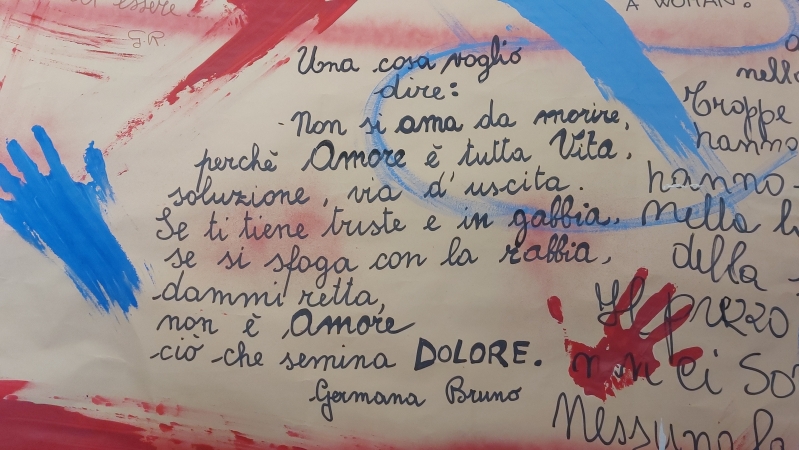 essere
G.R.
A WOMAN.
Una cosa voglio
dire:
Non si ama da morire,
perchè Amore è tutta Vita,
soluzione, via d'uscita.
Se ti tiene triste e in gabbia,
se si sfoga con la rabbia,
dammi retta,
non è Amore
ciò che semina DOLORE.
Germana Bruno
Troppe
hanno
hanno
nella
della
Il puzzo
non ci
Nessuno